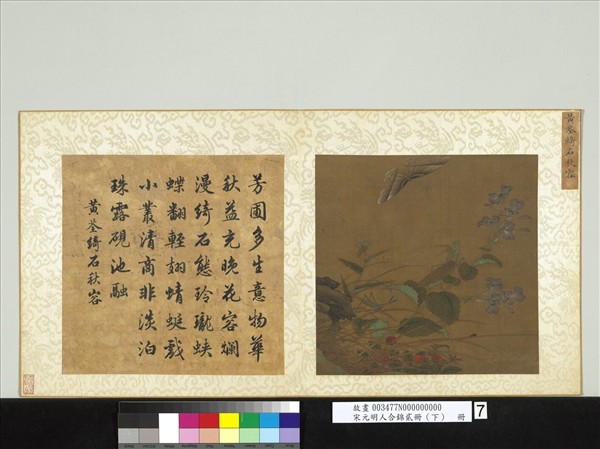 芳圃多生意物華
秋益充晚花容爛
漫綺石態玲瓏蛺
蝶翻輕翅蜻蜓戲
小叢清商非淡泊
珠露硯池融
黃荃綺石秋容
黃荃綺石秋容
故畫 003477N000000000
宋元明人合錦貳冊(下) 冊
7